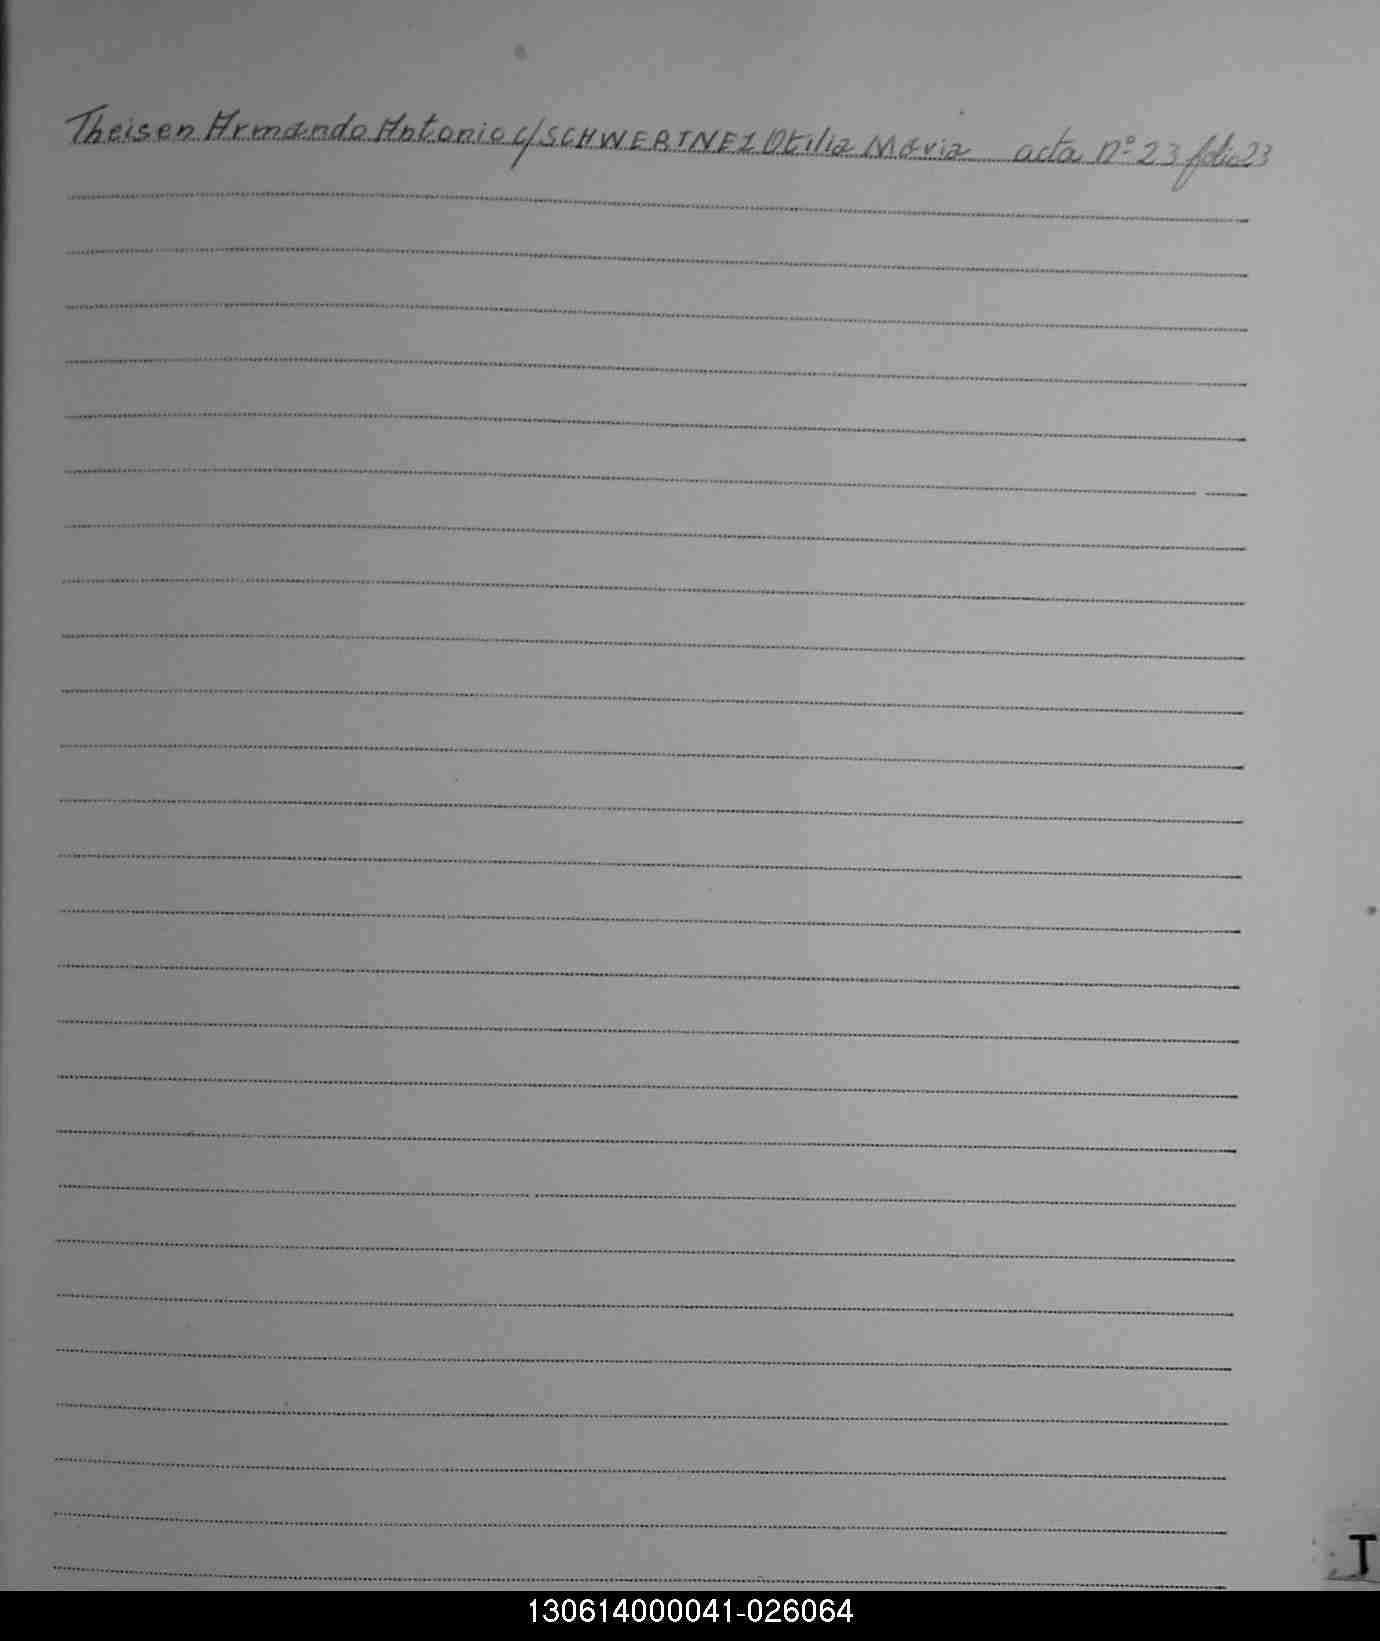 Theisen Armando Antonio c/SCHWERTNEZ Otilia Maria acta nº 23 folio 23
T
130614000041-026064